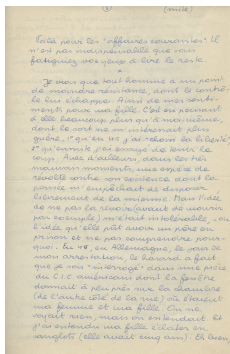 (suite)
Voilà pour les "affaires courantes". Il
n'est pas indispensable que vous
fatiguiez vos yeux à lire le reste.
*
Je crois que tout homme a un point
de moindre résistance, dont le contrô-
le lui échappe. Ainsi de mes senti-
ments pour ma fille. C'est en pensant
à elle beaucoup plus qu'à moi-même,
dont le sort ne m'intéressait plus
guère, 1° qu'en j'ai choisi la liberté,
2° qu'ensuite j'ai essayé de tenir le
coup. Avec d'ailleurs, dans les très
mauvais moments, une espèce de
révolte contre son existence dont la
pensée m'empêchait de disposer
librement de la mienne. Mais l'idée
de ne pas la revoir (avant de mourir
par exemple) m'était intolérable, ou
l'idée qu'elle pût avoir un père en
prison et ne pas comprendre pour-
quoi. En 48, en Allemagne, le jour de
mon arrestation, le hasard a fait
que je sois "interrogé" dans une pièce
du C.I.C américain dont la fenêtre
donnait à peu près sur la chambre
(de l'autre côté de la rue) où étaient
ma femme et ma fille. On ne
voyait rien, mais on entendait. Et
j'ai entendu ma fille éclater en
sanglots (elle avait cinq ans). Eh bien,